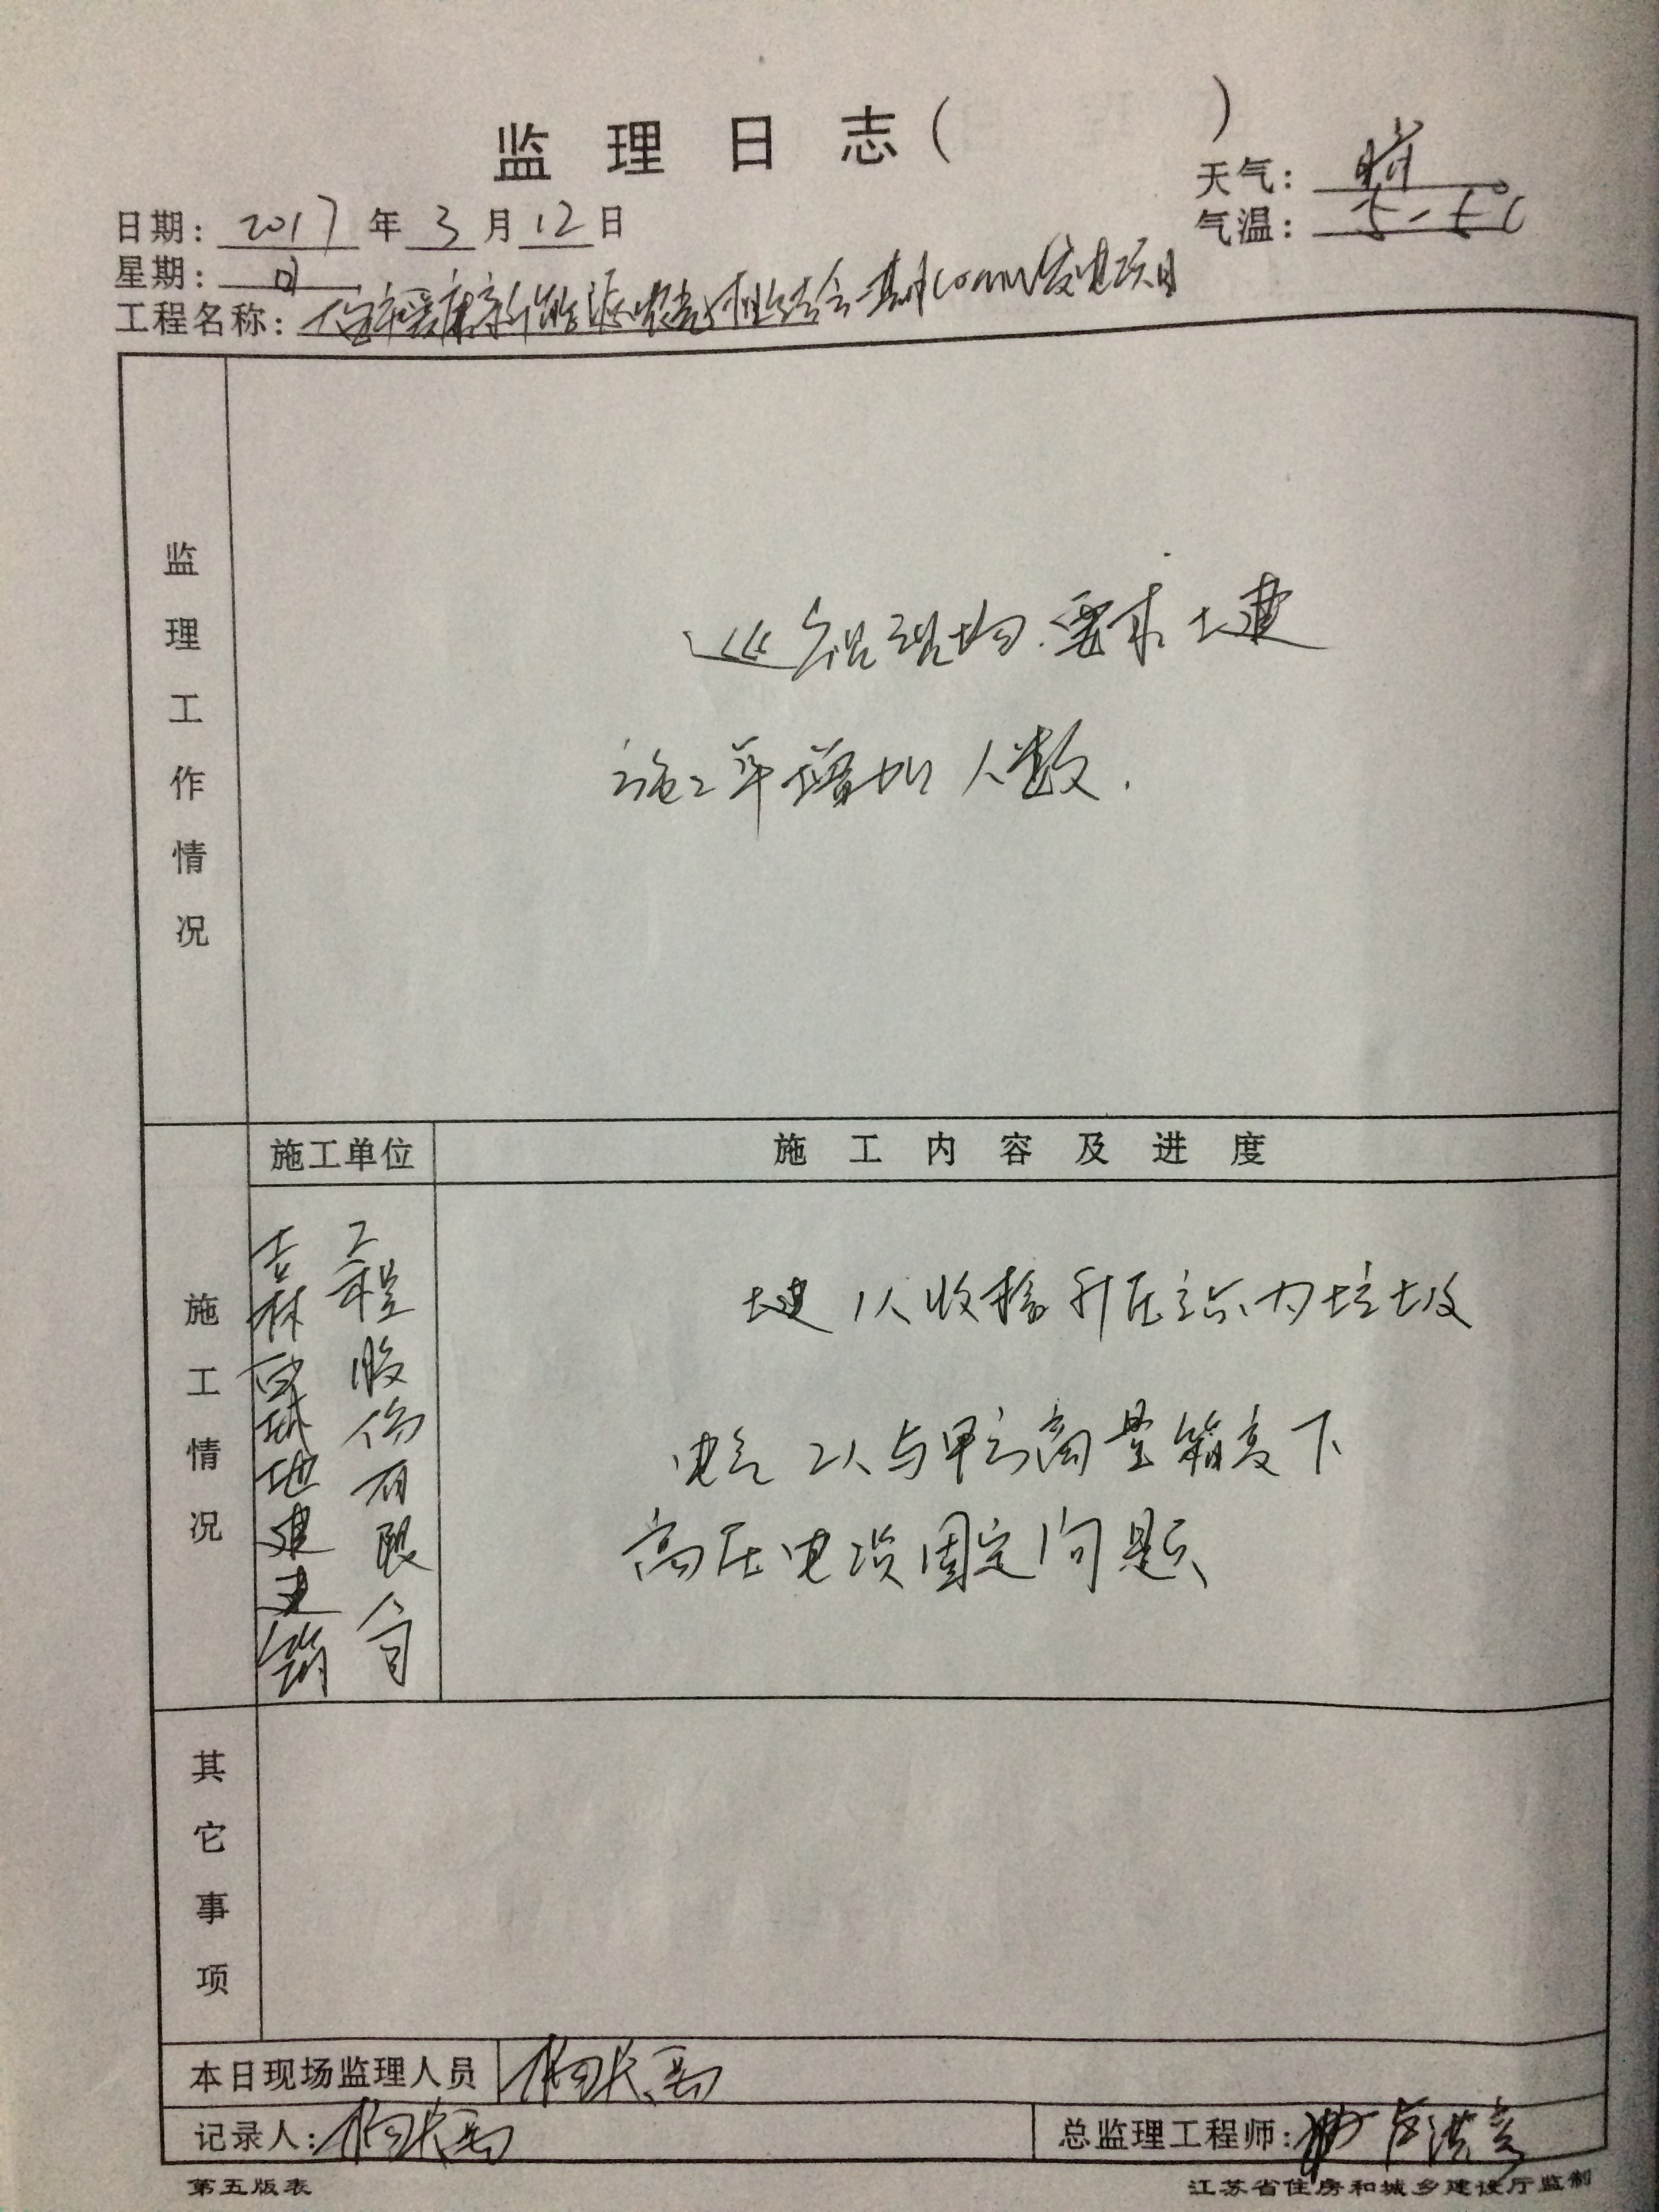 监理日志( )
天气: 晴
日期: 2017 年 3 月 12 日
气温: 5-15℃
星期: 日
工程名称: 新能源 结合一期 发电项目
监理工作情况
巡视现场.要求土建
施工单增加人数.
施工单位
施工内容及进度
施工情况
吉林 地建建筑
工程股份有限公司
土建 1人收拾升压站内垃圾
电气 2人与甲方商量箱变下
高压电缆固定问题
其它事项
本日现场监理人员
记录人:
总监理工程师:
第五版表
江苏省住房和城乡建设厅监制